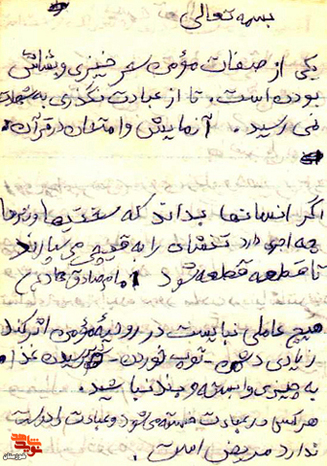 بسمه تعالی
یکی از صفات مؤمن سحر خیزی و بشاش
بوده است. تا از عبادت نگذری به شهادت
نمی رسید. آزمایش و امتحان در قرآن.
اگر انسانها بداند که سختیها و رنجها
چه اجری دارد تنشان را به قیچی می سپارند
تا قطعه قطعه شود امام صادق (ع)
هیچ عاملی نبایست در روحیه مؤمن اثر کند
زیادی دشمن - توپ خوردن - نرسیدن غذا.
به چیزی وابسته و بند نباشید.
هر کس در عبادت خسته می شود و عبادت را دوست
ندارد مریض است.
نوید شاهد
خوزستان